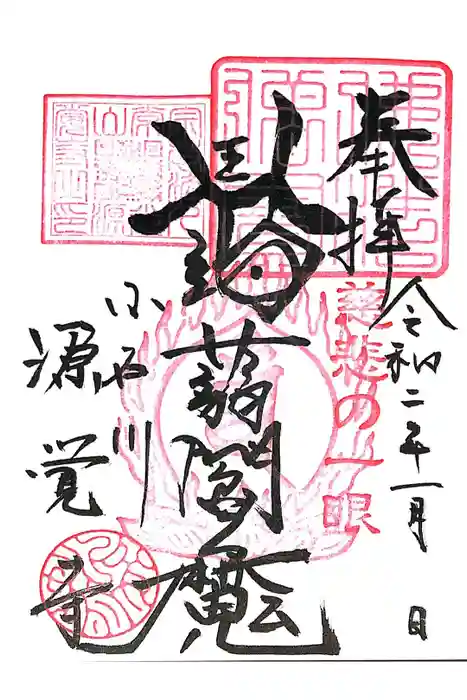 奉拝
令和二年一月 日
慈悲の一眼
蒟蒻閻魔
小石川
源覚寺